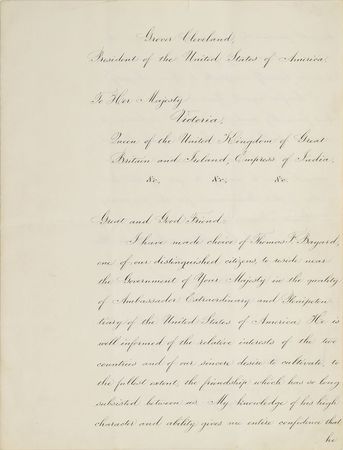 Grover Cleveland,
President of the United States of America,
To Her Majesty
Victoria,
Queen of the United Kingdom of Great
Britain and Ireland, Empress of India,
&c, &c, &c.
Great and Good Friend,
I have made choice of Thomas F. Bayard,
one of our distinguished citizens, to reside near
the Government of Your Majesty in the quality
of Ambassador Extraordinary and Plenipoten-
tiary of the United States of America. He is
well informed of the relative interests of the two
countries and of our sincere desire to cultivate, to
the fullest extent, the friendship which has so long
subsisted between us. My knowledge of his high
character and ability gives me entire confidence that
he